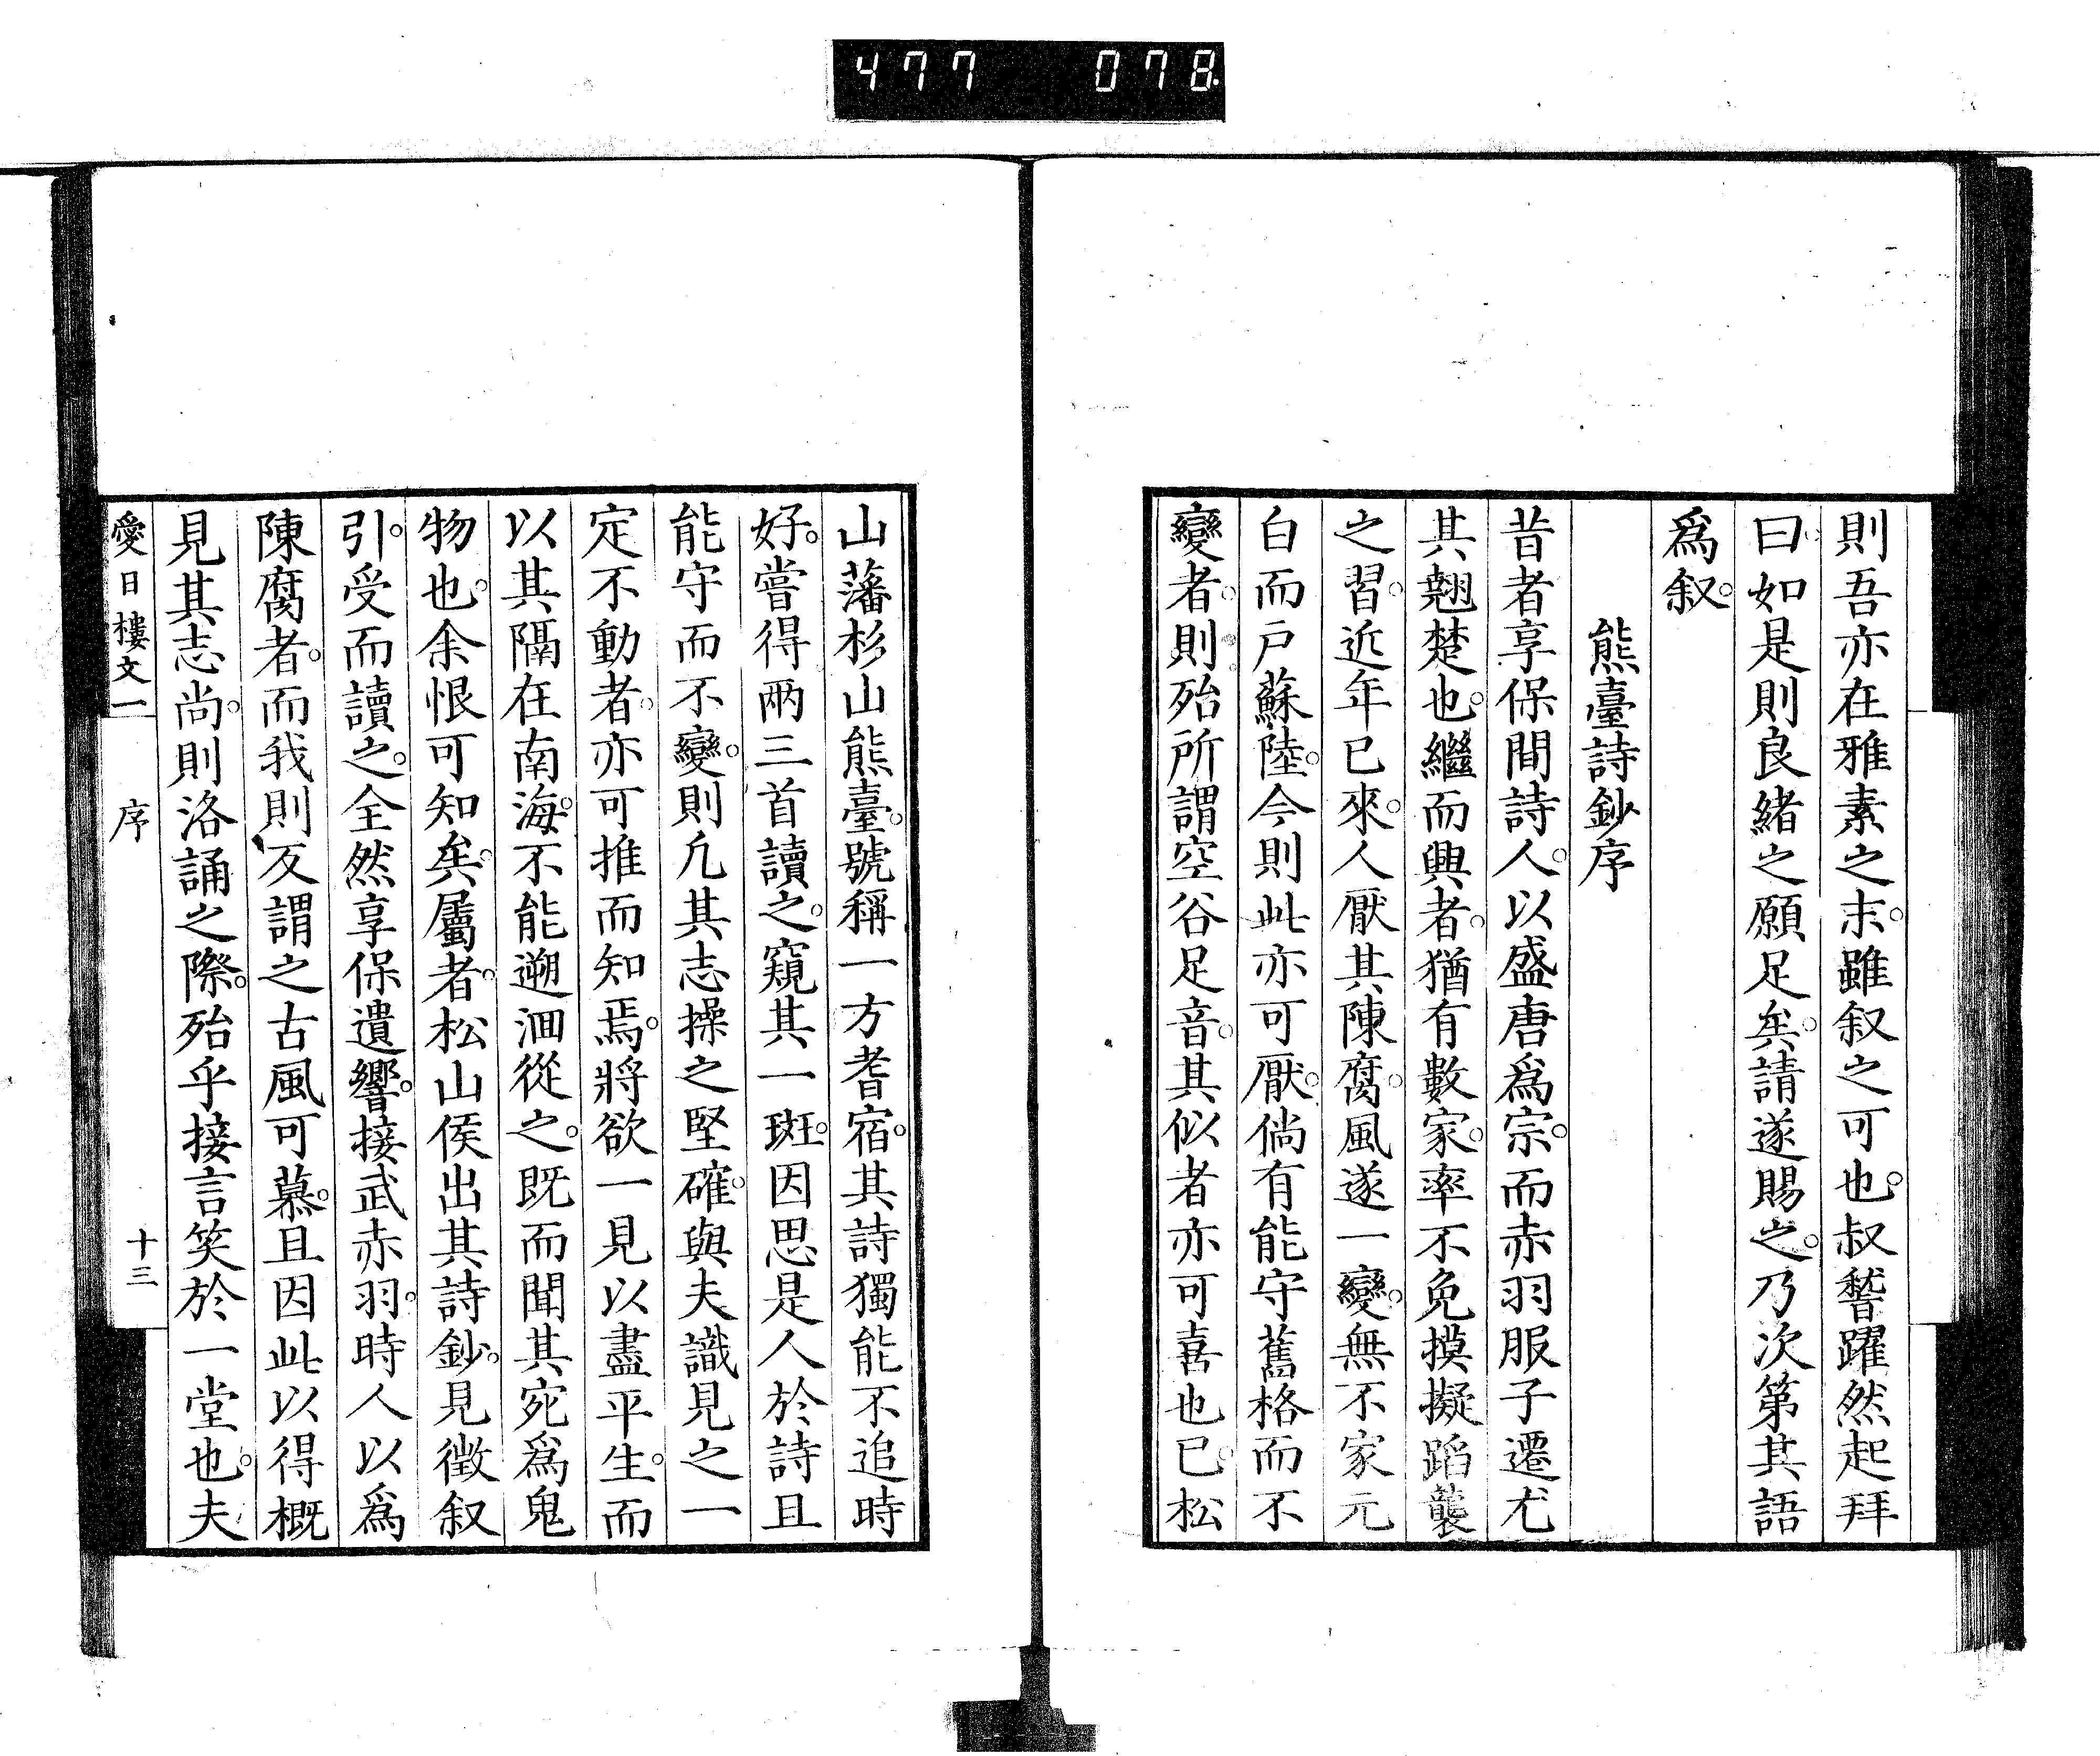 477 078
則吾亦在雅素之末。雖叙之可也。叔謦躍然起拜
曰。如是則良緒之願足矣。請遂賜之。乃次第其語
爲叙。
熊臺詩鈔序
昔者享保間詩人。以盛唐爲宗。而赤羽服子遷尤
其翹楚也。繼而興者。猶有數家。率不免摸擬蹈襲
之習。近年已來。人厭其陳腐。風遂一變。無不家元
白而戶蘇陸。今則此亦可厭。倘有能守舊格而不
變者。則殆所謂空谷足音。其似者亦可喜也已。松
山藩杉山熊臺。號稱一方耆宿。其詩獨能不追時
好。嘗得兩三首讀之。窺其一斑。因思是人於詩且
能守而不變。則凢其志操之堅確。與夫識見之一
定不動者。亦可推而知焉。將欲一見以盡平生。而
以其隔在南海。不能遡洄從之。既而聞其宛爲鬼
物也。余恨可知矣。屬者。松山侯出其詩鈔。見徵叙
引。受而讀之。全然享保遺響。接武赤羽。時人以爲
陳腐者。而我則反謂之古風可慕。且因此以得概
見其志尚。則洛誦之際。殆乎接言笑於一堂也。夫
愛日樓文一 序 十三